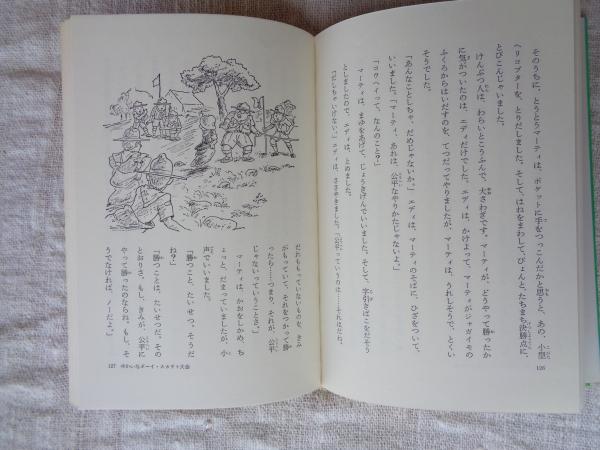 そのうちに、とうとうマーティは、ポケットに手をつっこんだかと思うと、あの、小型
ヘリコプターを、とりだしました。そして、はねをまわして、ぴょんと、たちまち、決勝点に、
とびこんじゃいました。
けんぶつ人は、わらいとこうふんで、大さわぎです。マーティが、どうやって勝ったか
に気がついたのは、エディだけでした。エディは、かけよって、マーティがジャガイモの
ふくろからはいだすのを、てつだってやりましたが、マーティは、うれしそうで、とくい
そうでした。
「あんなことしちゃ、だめじゃないか。」エディは、マーティのそばに、ひざをついて、
いいました。「マーティ、あれは、公平なやりかたじゃないよ。」
「コウヘイって、なんのこと?」
マーティは、まゆをあげて、じょうきげんでいいました。そして、字引きばこをだそう
としましたので、エディは、とめました。
「だしちゃいけない。」エディは、ささやきました。「公平っていうのは……それはだね、
126
だれももっていないものを、きみ
がもっていて、それをつかって勝
ったら……つまり、それが、公平
じゃないっていうことさ。」
マーティは、かおをしかめ、ち
ょっと、だまっていましたが、小
声でいいました。
「勝つこと、たいせつ、そうだ
ね?」
「勝つことは、たいせつだ。その
とおりさ。もし、きみが、公平に
やって勝ったのならね。もし、そ
うでなければ、ノーだよ。」
127 ゆかいなボーイ・スカウト大会